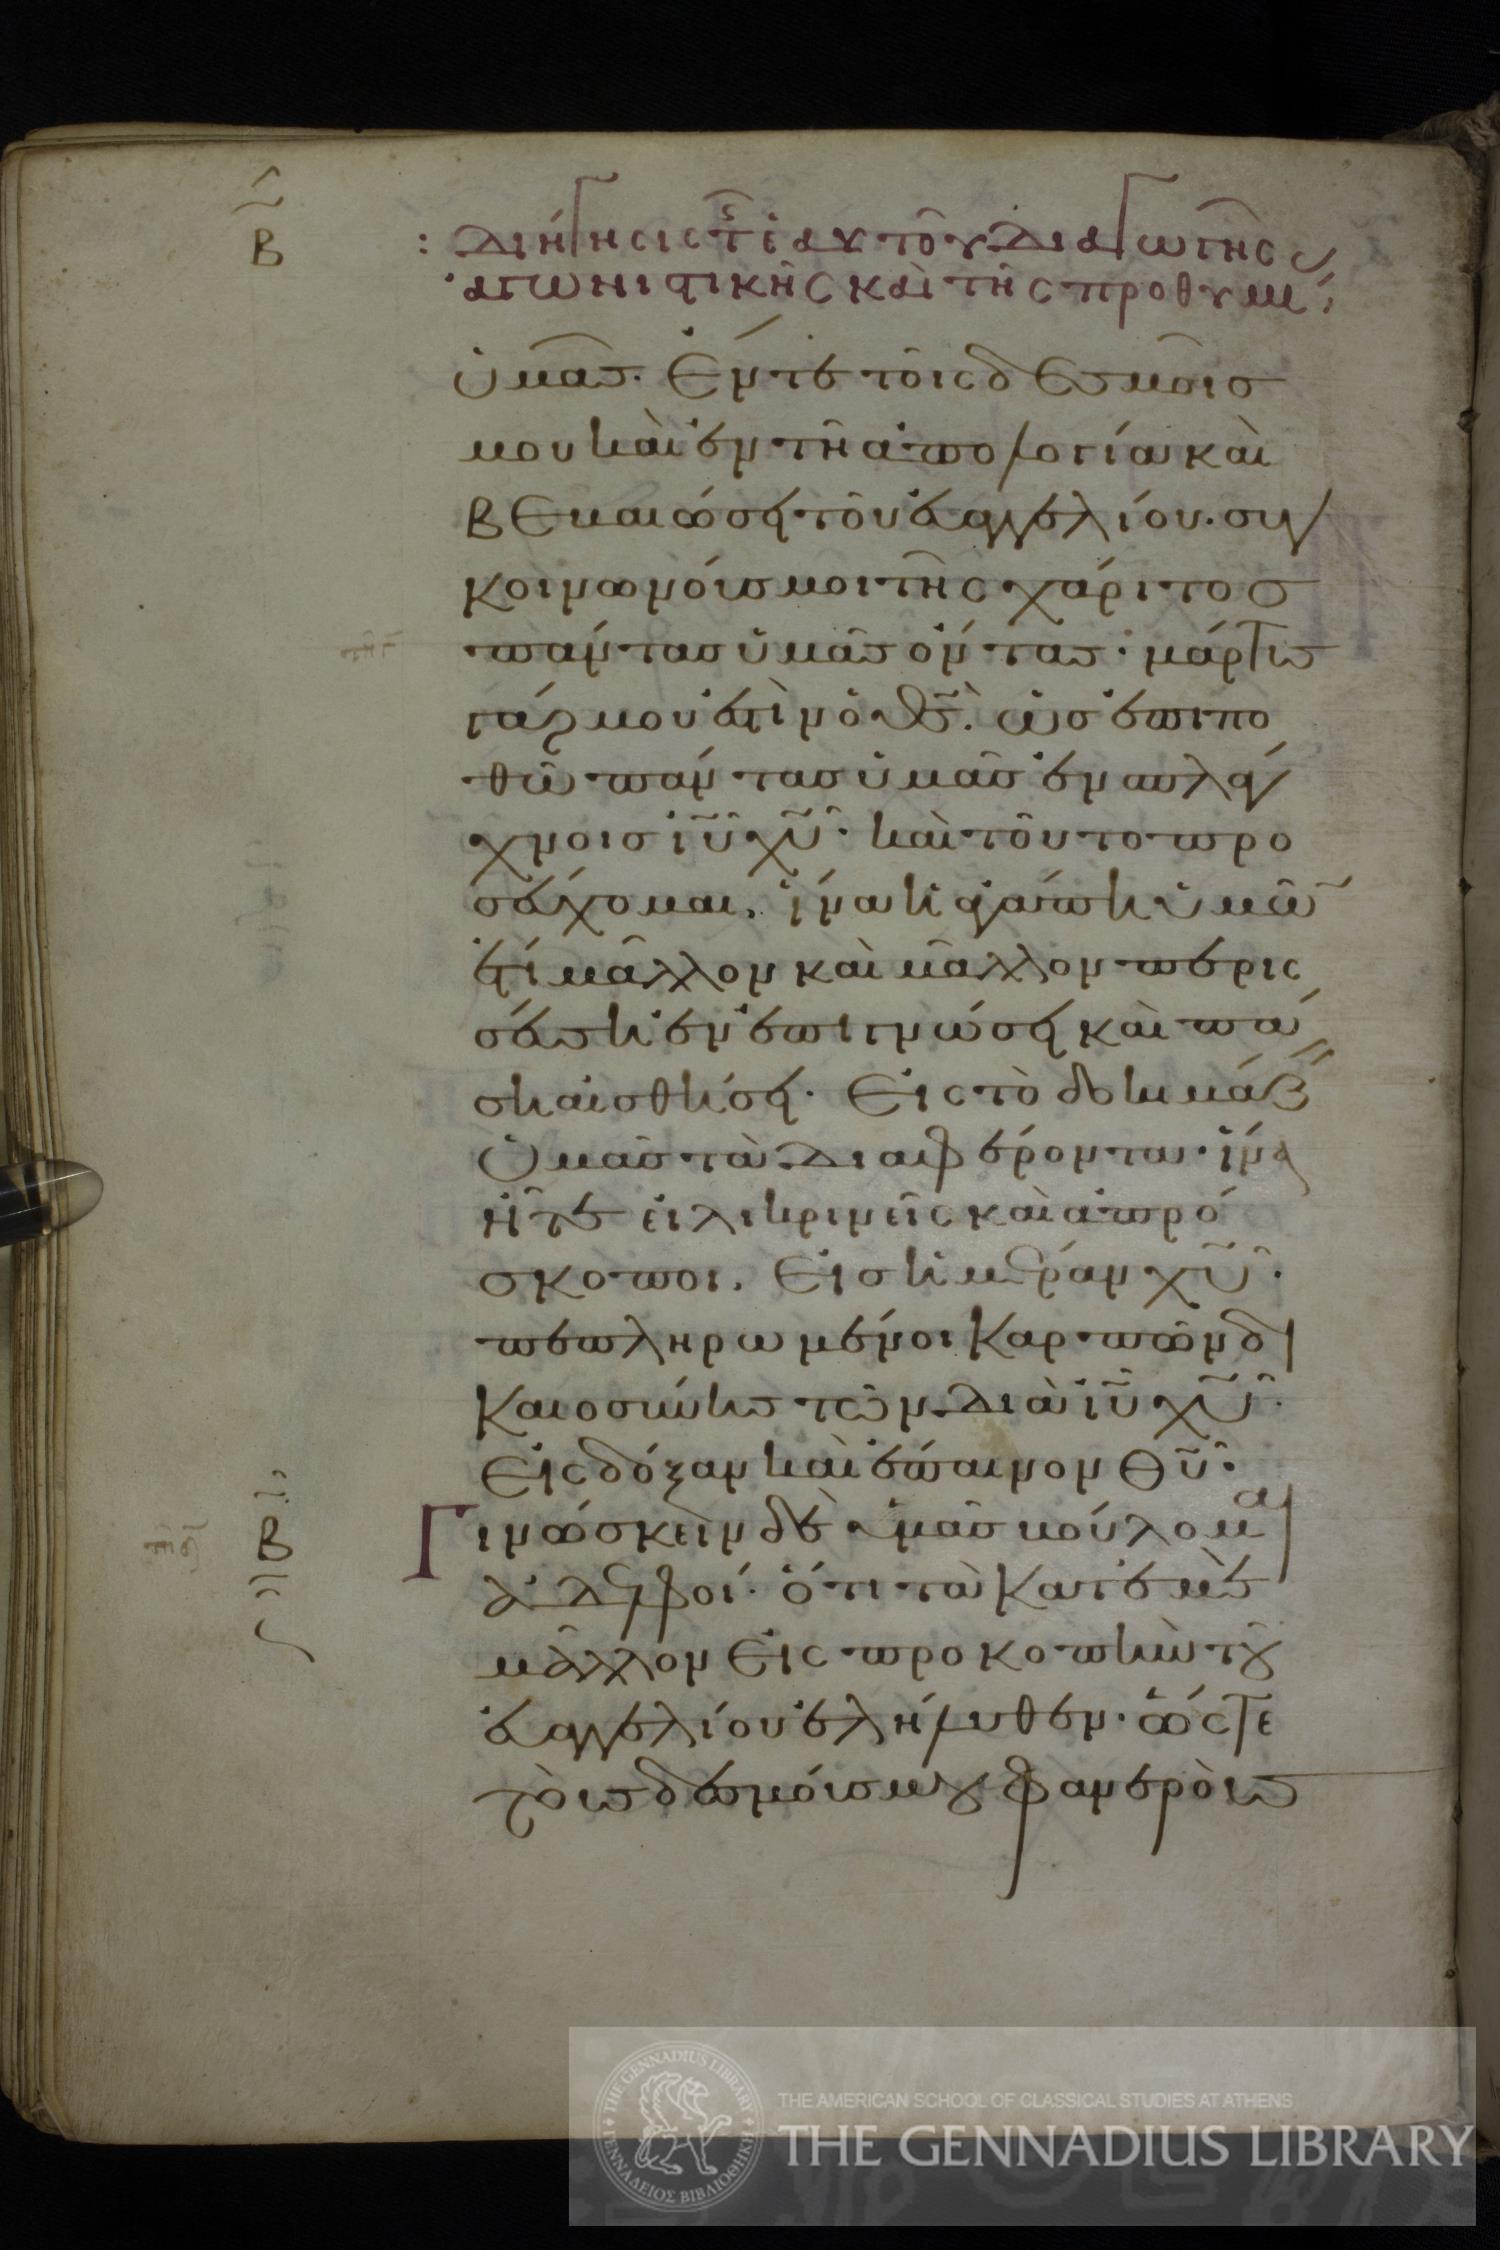 Β
: Διήγησις τῆς ἑαυτοῦ διαγωγῆς
ἀγωνιστικῆς καὶ τῆς προθυμί
ὑμᾶς. Ἔν τε τοῖς δεσμοῖς
μου καὶ ἐν τῆ ἀπολογία καὶ
βεβαιώσει τοῦ εὐαγγελίου. συγ
κοινωνούς μοι τῆς χάριτος
πάντας ὑμᾶς ὄντας· μάρτυς
γάρ μου ἐστὶν ὁ θς̄. ὡς ἐπιπο
θῶ πάντας ὑμᾶς ἐν σπλάγ
χνοις ῑῡ χ̄ῡ· καὶ τοῦτο προ
σεύχομαι, ἵνα ἡ ἀγάπη ὑμῶ
ἔτι μᾶλλον καὶ μᾶλλον περισ
σεύη ἐν ἐπιγνώσει καὶ πά
ση αἰσθήσει· Εἰς τὸ δοκιμάζ
ὑμᾶς τὰ διαφέροντα· ἵνα
ἦτε εἰλικρινεῖς καὶ ἀπρό
σκοποι, Εἰς ἡμέραν χ̄ῡ·
πεπληρωμένοι καρπῶν δι
καιοσύνης τῶν διὰ ῑῡ χ̄ῡ·
Εἰς δόξαν καὶ ἔπαινον θ̄ῡ·
Β
Γινώσκειν δὲ ὑμᾶς βούλομαι
ἀδελφοί· ὅτι τὰ κατ ἐμὲ
μᾶλλον εἰς προκοπὴν τοῦ
εὐαγγελίου ἐλήλυθεν· ὥστε
τοὺς δεσμούς μου φανεροὺς
THE GENNADIUS LIBRARY
ΓΕΝΝΑΔΕΙΟΣ ΒΙΒΛΙΟΘΗΚΗ
THE AMERICAN SCHOOL OF CLASSICAL STUDIES AT ATHENS
THE GENNADIUS LIBRARY